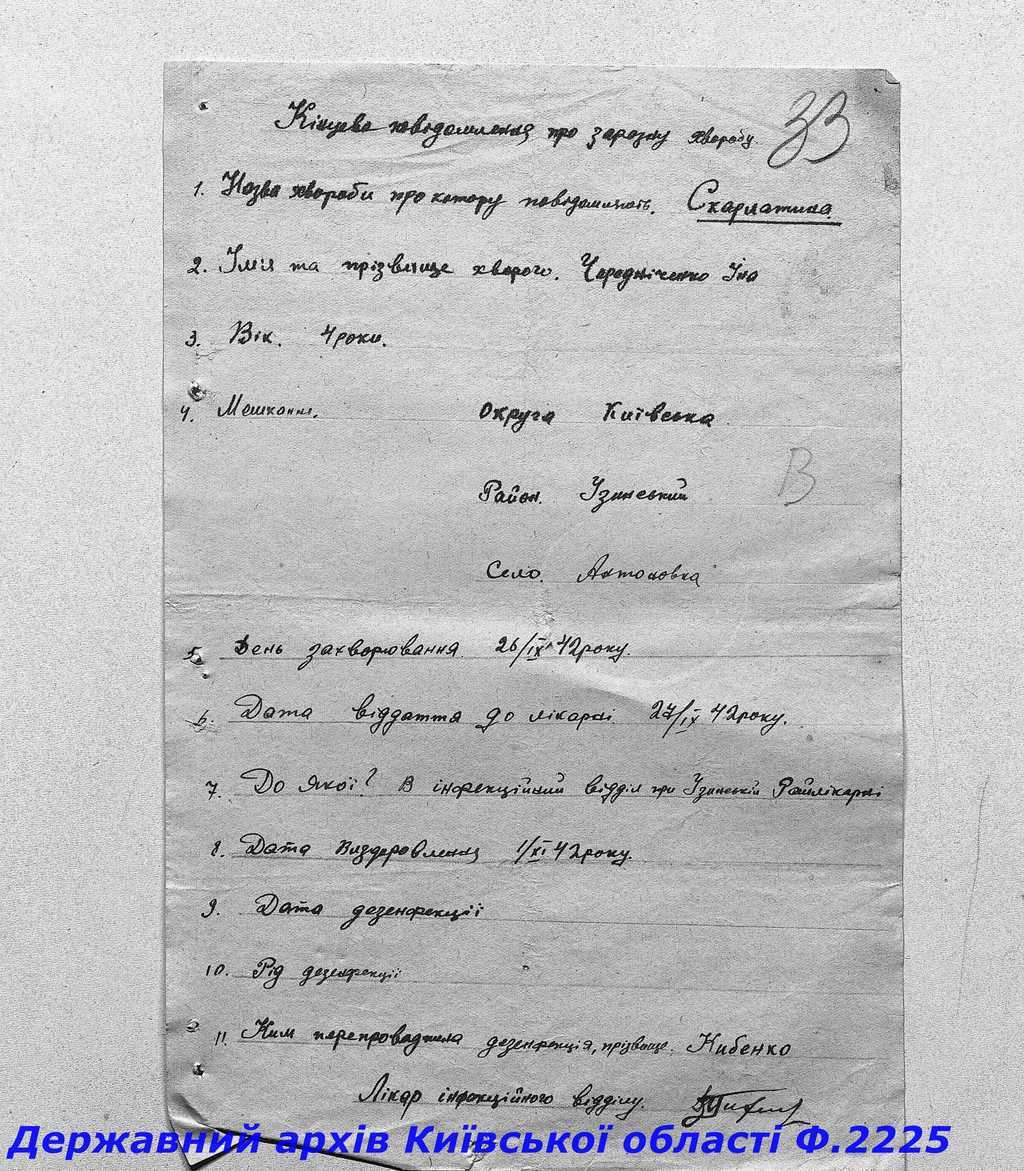 Кінцеве повідомлення про заразну хворобу.
33
1. Назва хвороби про котору повідомляють. Скарлатина.
2. Ім'я та прізвище хворого. Чередніченко Іна
3. Вік. 4 роки.
4. Мешкання. Округа Київська
В
Район. Узинський
Село. Антоновка
5. День захворювання 26/IX 42 року.
6. Дата віддаття до лікарні 27/IX 42 року.
7. До якої? В інфекційний відділ при Узинській Райлікарні
8. Дата виздоровлення 1/XI 42 року.
9. Дата дезенфекції
10. Рід дезенфекції
11. Ким перепроваджена дезенфекція, прізвище. Кибенко
Лікар інфекційного відділу.
Державний архів Київської області Ф.2225